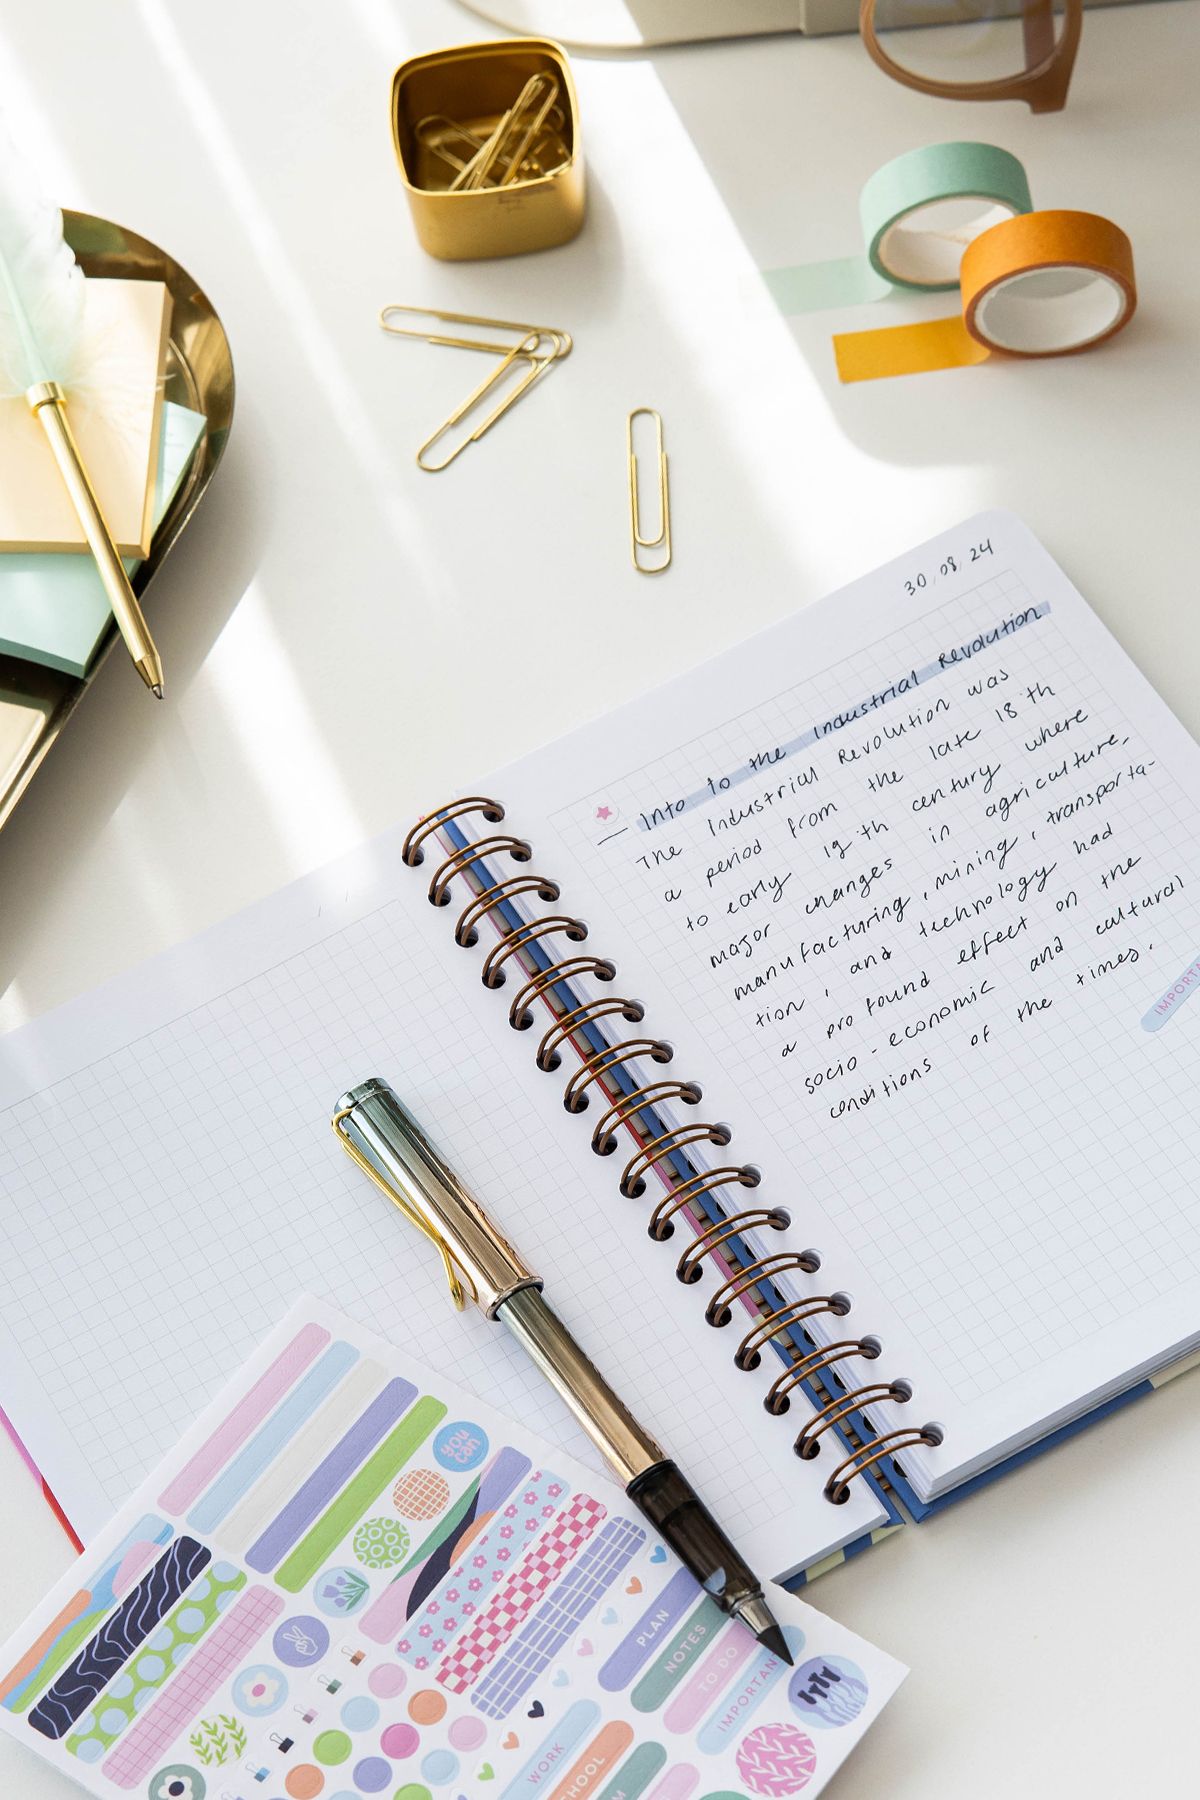 30.08.24
Into to the Industrial Revolution
The Industrial Revolution was
a period from the late 18th
to early 19th century where
major changes in agriculture,
manufacturing, mining, transporta-
tion, and technology had
a profound effect on the
socio-economic and cultural
conditions of the times.
IMPORTA
you can
PLAN
NOTES
TO DO
IMPORTANT
WORK